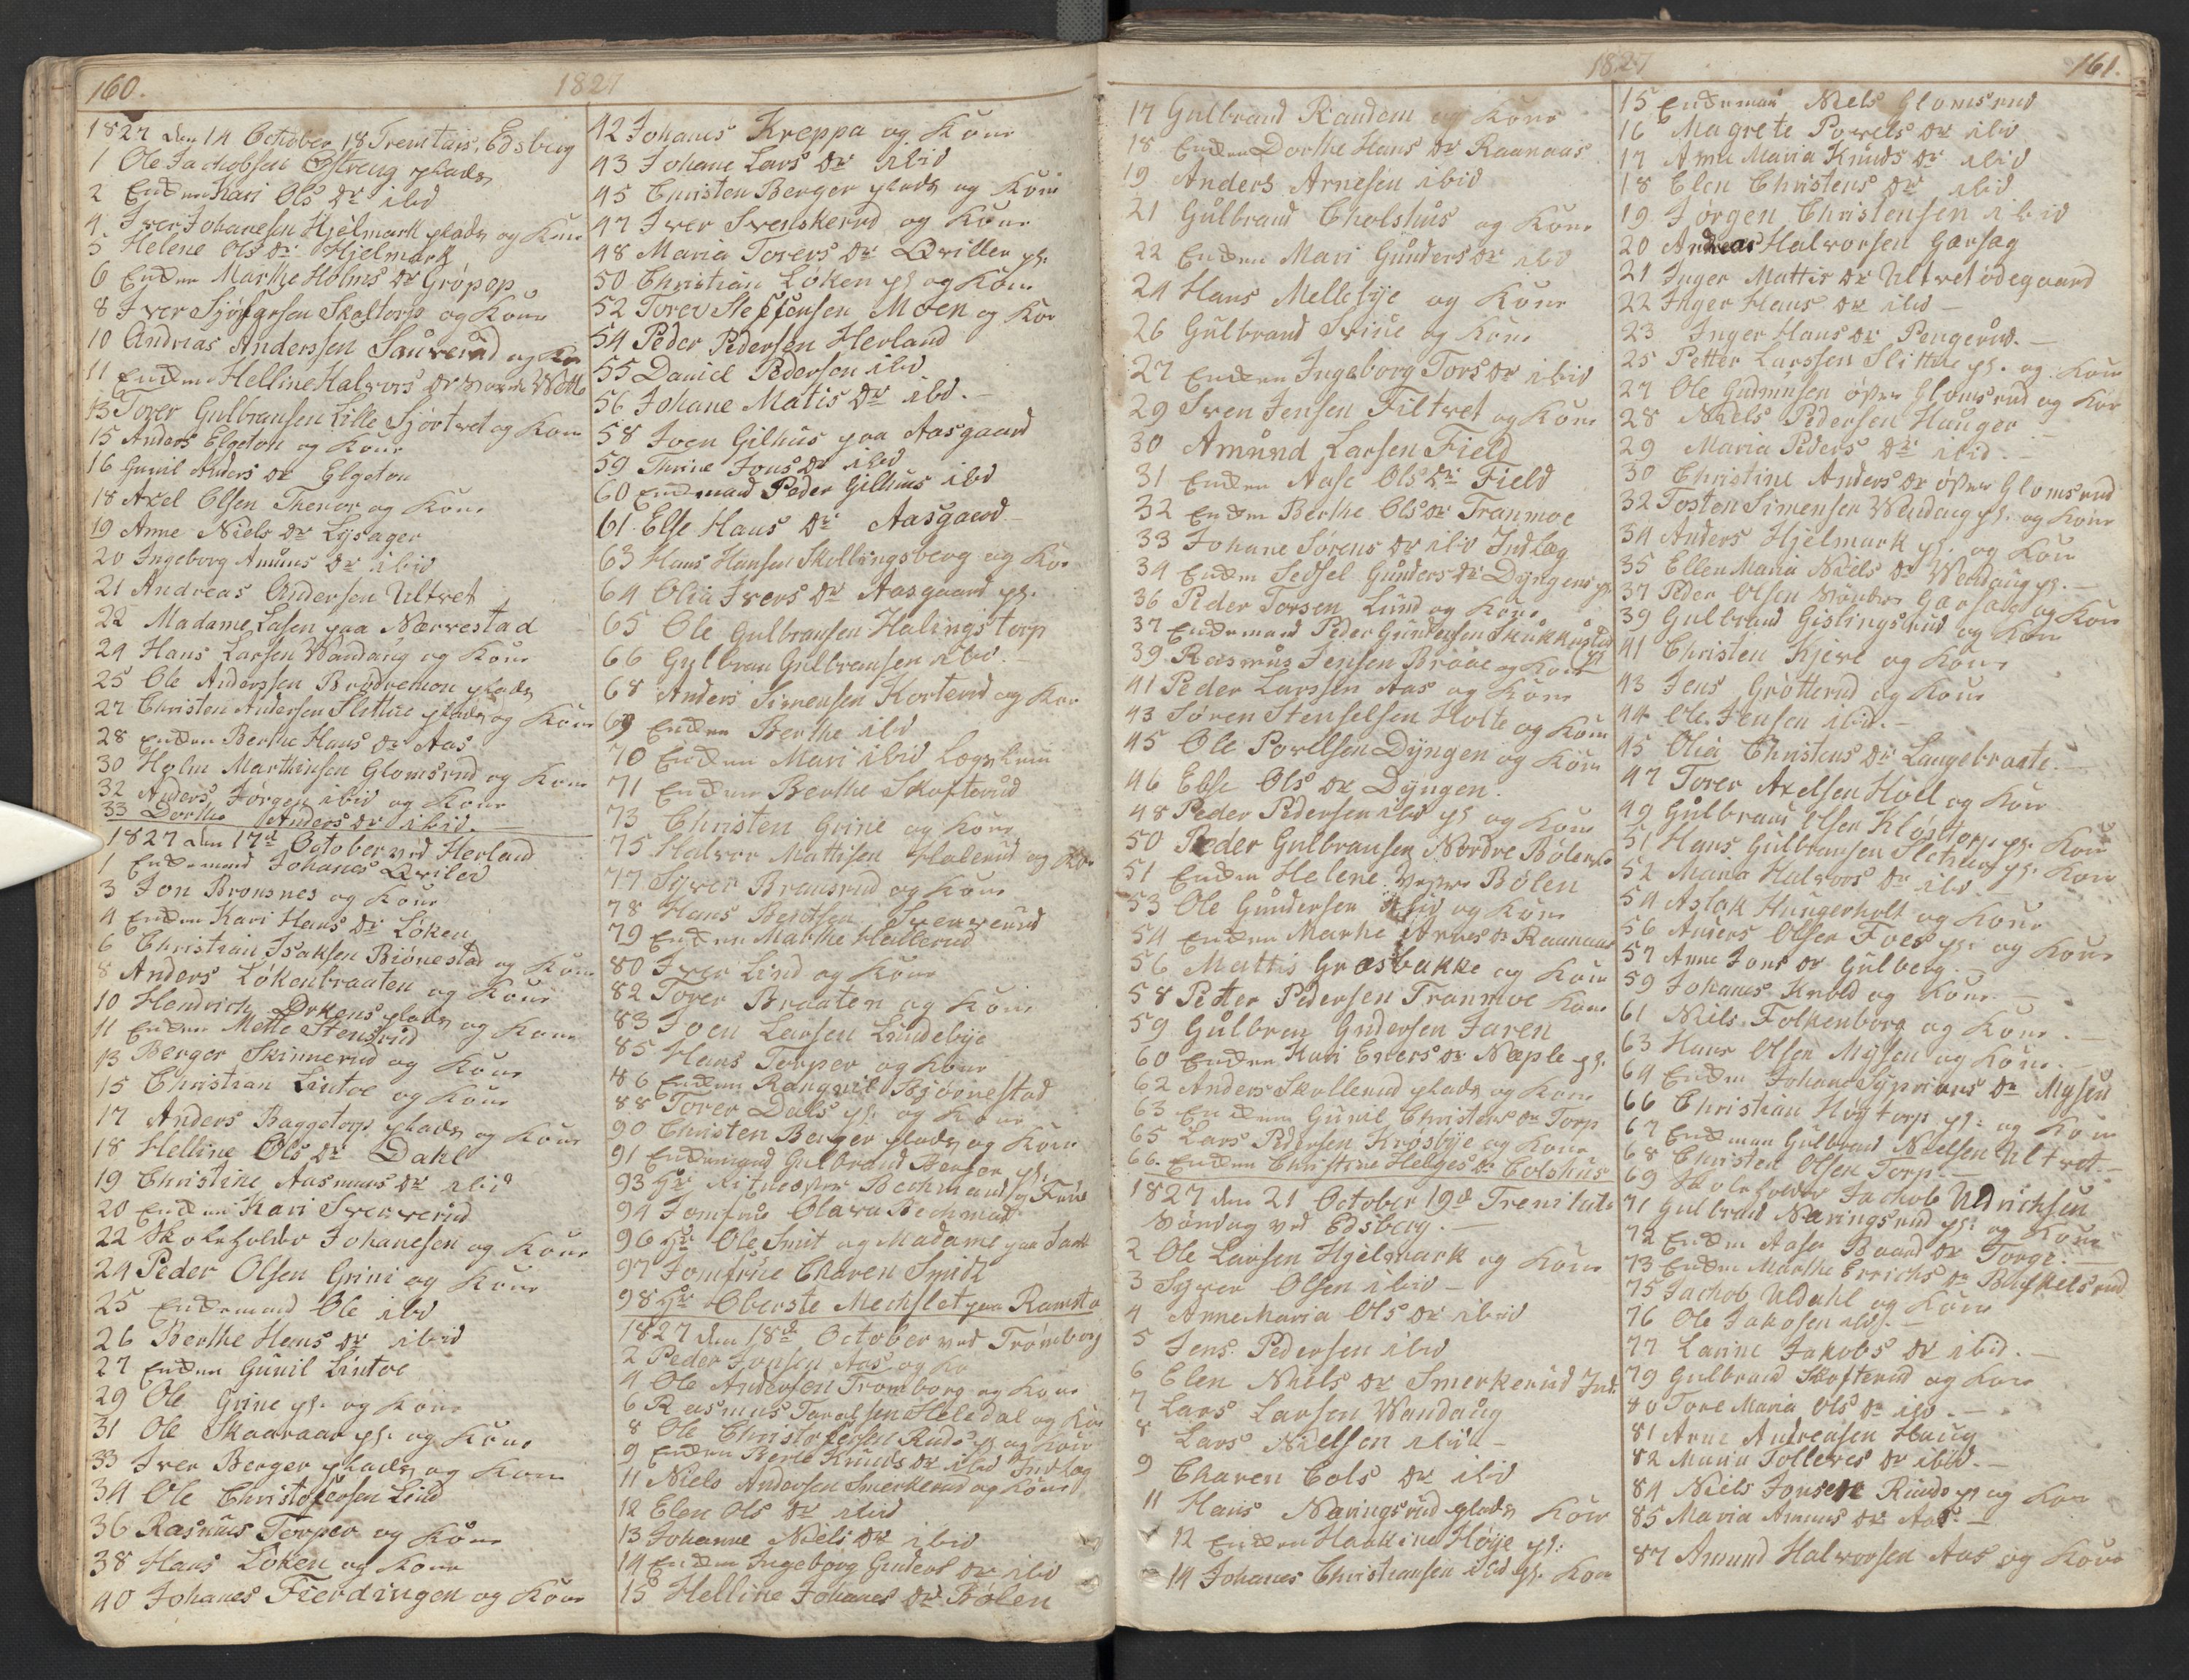 160.
1827
1827 den 14 October 18 Trenitatis Edsberg
1 Ole Jachobsen Østreng plads
2 Enken Kari Ols Dr ibid
4 Iver Johanesen Hjelmark plads og Kone
5 Helene Ols Dr Hjelmark
6 Enken Marthe Holms Dr Grøpop
8 Iver Skoltorp og Kone
10 Andrias Anderssen Saúverud og Kon
11 Enken Helline Halvors Dr
13 Torer Gulbransen Lille og Kone
15 Anders Elgeton og Kone
16 Gunil Anders Dr Elgeton
18 Axel Olsen Thenor og Kone
19 Anne Niels Dr Lysager
20 Ingeborg Amúns Dr ibid
21 Andreas Andersen Ultvet
22 Madame Lasen paa Nærvestad
24 Hans Larsen Wandaúg og Kone
25 Ole Anderssen Brødremon plads
27 Christen Andersen Slettue plads og Kone
28 Enken Berthe Hans Dr Aas
30 Holm Marthinsen Glomsrud og Kone
32 Anders Jørgen ibid og Kone
33 Dorthe Anders Dr ibid.
1827 den 17d October ved Herland
1 Enkemand Johanes Qviler
3 Jon Bronsnes og Kone
4 Enken Kari Hans Dr Løken
6 Christian Isaksen Biønestad og Kone
8 Anders Løkenbraaten og Kone
10 Hendrich Ørkens plads og Kone
11 Enken Mette Stensrud
13 Berger Skinnerud og Kone
15 Christian Lintoe og Kone
17 Anders Baggetorp plads og Kone
18 Helline Ols Dr Dahl
19 Christine Aasmuns Dr ibid
20 Enken Kari Sververud
22 Skoleholder Johanesen og Kone
24 Peder Olsen Grini og Kone
25 Enkemand Ole ibd
26 Berthe Hans Dr ibid
27 Enken Gúnil Lintoe
29 Ole Grine pl. og Kone
31 Ole Skaaraar pl. og Kone
33 Iver Berger plads og Kone
34 Ole Christofersen Lind
36 Rasmus Torper og Kone
38 Hans Løken og Kone
40 Johanes Fierdingen og Kone
42 Johanes Kreppa og Kone
43 Johane Lars Dr ibid
45 Christen Berger plads og Kone
47 Iver Svenskerud og Kone
48 Maria Torers Dr Qviller pl.
50 Christian Løken pl og Kone
52 Torer Steffensen Moen og Kor
54 Peder Pedersen Herland
55 Daniel Pedersen ibid
56 Johane Matis Dr ibd.
58 Joen Gilhús paa Aasgaard
59 Thrine Jons Dr ibid
60 Enkemand Peder Gilhus ibd
61 Else Hans Dr Aasgaard
63 Hans Hansen Skellingsberg og Kor
64 Olia Ivers Dr Aasgaard pl.
65 Ole Gulbransen Halingstorp
66 Gylbran Gulbransen ibd.
68 Anders Simensen Korterud og Kor
69 Enken Berthe ibd
70 Enken Mari ibid Lægslem
71 Enken Berthe Skofterúd
73 Christen Grine og Kone
75 Halvor Mattisen Haterud og Kor
77 Syver Bransrud og Kone
78 Hans Berdtsen Sververud
79 Enken Marthe Hallerud
80 Iver Lind og Kone
82 Torer Braaten og Kone
83 Joen Larsen Lindebye
85 Hans Torper og Kone
86 Enken Rangnil Bjørnestad
88 Torer Dals pl. og Kone
90 Christen Berger plads og Kone
91 Enkemand Gulbrand Berger pl.
93 Hr Ritmester Bechmand og Frue
94 Jomfrue Olava Bechmad
96 Hr Ole Smit og Madame paa
97 Jomfrúe Charen Smidt
98 Hr Oberste Mechslet paa Ramsta
1827 den 18d October ved Trømborg
2 Peder Jonsen Aas og Ko
4 Ole Andersen Tromborg og Kone
6 Rasmus Taralsen Heledal og Kor
8 Ole Christofersen Ruds pl og Kone
9 Enken Berte Knuds Dr ibd Indlag
11 Niels Andersen Smerkerud og Kone
12 Elen Ols Dr ibid
13 Johanne Niels Dr ibid
14 Enken Ingeborg Gunders Dr ibid
15 Helline Johanes Dr Bølen
1827
161.
17 Gulbrand Randem og Kone
18 Enken Dorthe Hans Dr Raanaas
19 Anders Arnesen ibid
21 Gúlbrand Cholshús og Kone
22 Enken Mari Gúnders Dr ibd
24 Hans Mellebye og Kone
26 Gúlbrand Svine og Kone
27 Enken Ingeborg Tors Dr ibid
29 Sven Jensen Filtvet og Kone
30 Amúnd Larsen Field
31 Enken Aase Ols Dr Field
32 Enken Berthe Ols Dr Tranmoe
33 Johane Sørens Dr ibid Indlag
34 Enken Sedsel Gúnders Dr Dyngens pl.
36 Peder Torsen Lúnd og Kone
37 Enkemand Peder Gundersen
39 Rasmus Jensen Braae og Kone
41 Peder Larssen Aas og Kone
43 Søren Stenselsen Holte og Kone
45 Ole Povelsen Dyngen og Kone
46 Else Ols Dr Dyngen.
48 Peder Pedersen ibd pl og Kone
50 Peder Gulbransen Nordre Bølen
51 Enken Helene Vestre Bølen
53 Ole Gúndersen ibid og Kone
54 Enken Marthe Arnes Dr Raanaas
56 Mattis Græsbakke og Kone
58 Petter Pedersen Tranmoe Kone
59 Gúlbran Gudersen Jaren
60 Enken Kari Eners Dr Næple pl.
62 Anders Skollerud plads og Kone
63 Enken Gúnil Christens Dr Torp
65 Lars Pedersen Krøsbye og Kone
66. Enken Christine Helges Dr Colshus
1827 den 21 October 19d Trenitatis
Søndag ved Edsberg.
2 Ole Larsen Hjelmark og Kone
3 Syver Olsen ibid
4 Anne Maria Ols Dr ibid
5 Jens Pedersen ibid
6 Elen Niels Dr Smerkerud Ind.
7 Lars Larsen Wandaúg
8 Lars Nielsen ibid
9 Charen Cols Dr ibid
11 Hans Næringsrud plads Kone
12 Enken Haakine Høye pl:
14 Johanes Christiansen ibid pl. Kone
15 Enkemand Niels Glomsrud
16 Magrete Povels Dr ibid
17 Anne Maria Knuds Dr ibid
18 Elen Christens Dr ibid
19 Jørgen Christensen ibid
20 Andreas Halvorsen Garsag
21 Inger Mattis Dr Ultvetødegaard
22 Inger Hans Dr ibd
23 Inger Hans Dr Pengerúd.
25 Petter Larssen Slittue pl. og Kone
27 Ole Gudmunsen øfre Glomsrud og Kor
28 Niels Pedersen Haúger
29 Maria Peders Dr ibid.
30 Christine Anders Dr øfre Glomsrud
32 Tosten Simensen Wandaug pl. og Kone
34 Anders Hjelmark pl. og Kone
35 Ellen Maria Niels Dr Wandaug pl.
37 Peder Olsen Søndre Garsag og Kone
39 Gulbrand Gislingsrud og Kone
41 Christen Kjere og Kone
43 Jens Grøtterud og Kone
44 Ole Jensen ibid.
45 Olia Christens Dr Langebraate.
47 Torer Axelsen Hoel og Kone
49 Gúlbrand Olsen Kløsttorp pl. Kone
51 Hans Gúlbransen Sletner pl. Kone
52 Maria Halvors Dr ibd
54 Aslak Hungerholt og Kone
56 Anders Olsen Foes pl. og Kone
57 Anne Jons Dr Gúlberg.
59 Johanes Krold og Kone.
61 Niels Folkenborg og Kone
63 Hans Olsen Mysen og Kone.
64 Enken Johane Syprians Dr Mysen
66 Christian Høytorp pl. og Kone
67 Enkeman Gulbrand Nielsen Ultvet.
68 Christen Olsen Torp.
69 Skoleholder Jachob Uldrichsen
71 Gulbrand Næringsrud pl. og Kone
72 Enken Aase Baard Dr Torge.
73 Enken Marthe Errichs Dr
75 Jachob Uldahl og Kone
76 Ole Jakobsen ibid.
77 Larine Jakobs Dr ibid.
79 Gulbrand Skofterud og Kone
80 Tore Maria Ols Dr ibd.
81 Arne Andreasen Haúg
82 Maria Tollevs Dr ibid.
84 Niels Jonsen Rúds pl og Kone
85 Maria Amuns Dr Aas.
87 Amund Halvorsen Aas og Kone